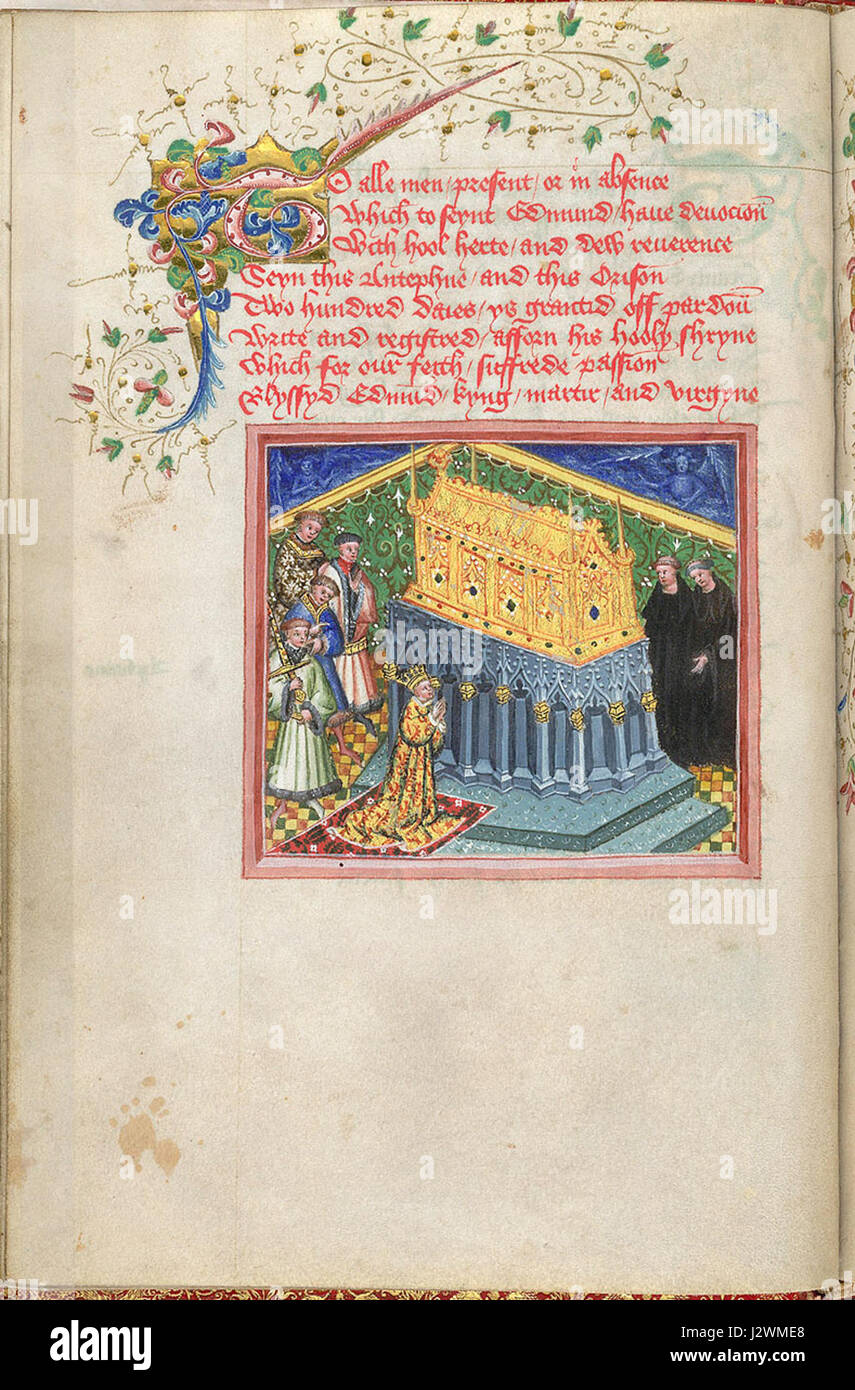 To alle men / present / or in absence
Which to seynt Edmund / haue deuocioun
With hool herte / and dew reuerence
Seyn this Antephne / and this Orison
Two hundred daies / ys grantid off pardoun
Write and registred / afforn his hooly shryne
Which for our feith / suffrede passion
Blyssyd Edmund / kyng / martir / and virgyne
a
alamy
alamy stock photo
Image ID: J2WME8
www.alamy.com